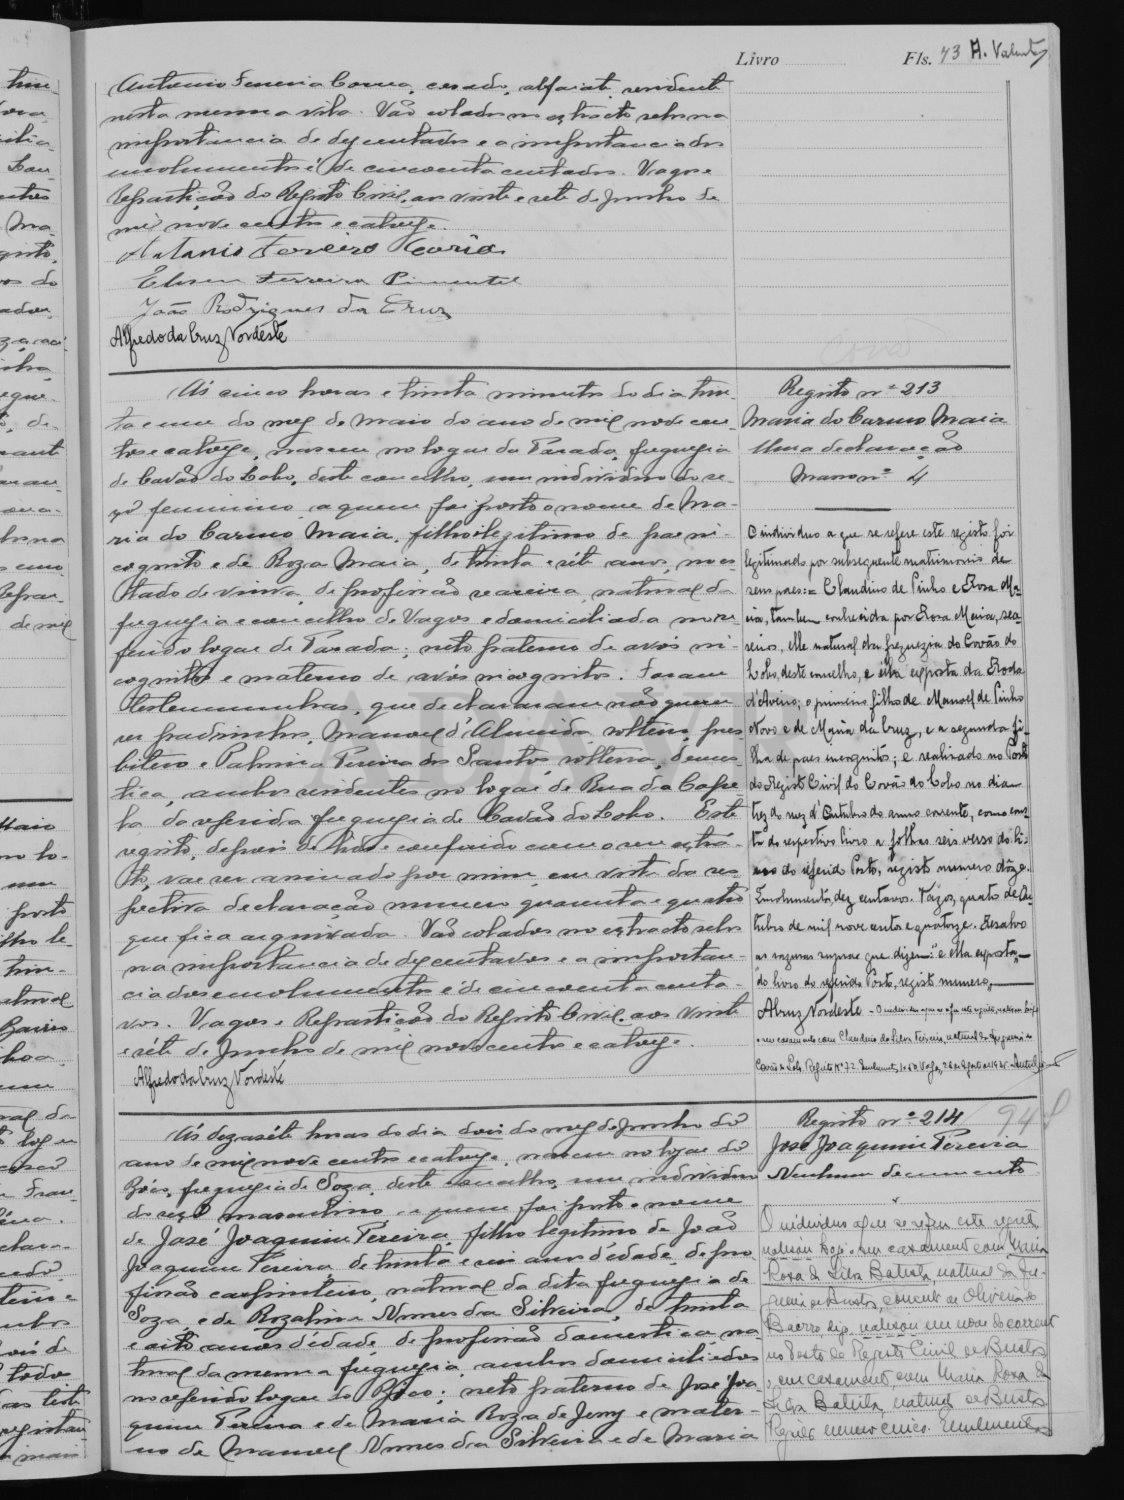 Livro Fls. 73 A. Valente
Antonio Ferreira Correia, casado, alfaiate, residente
nesta mesma vila. Vão colados no extracto selos na
importancia de dez centavos e a importancia dos
emolumentos é de cincoenta centavos. Vagos e
Repartição do Registo Civil, aos vinte e sete de Junho de
mil nove centos e catorze.
Antonio Ferreira
Ferreira Pimentel
João Rodrigues da Cruz
Alfredo da Cruz Nordeste
Ás cinco horas e trinta minutos do dia trin-
ta e um do mez de Maio do ano de mil nove cen-
tos e catorze, nasceu no logar da Parada, freguesia
de Covão do Lobo, deste concelho, um individuo do se-
xo feminino a quem foi posto o nome de Ma-
ria do Carmo Maia, filho ilegitimo de pae in-
cognito e de Roza Maia, de trinta e sete anos, no es-
tado de viuva, de profissão seareira, natural da
freguesia e concelho de Vagos e domiciliada no re-
ferido logar de Parada; neto paterno de avós in-
cognitos e materno de avós incognitos. Foram
testemunhas, que declararam não querer
ser padrinhos, Manoel d'Almeida, solteiro, pres-
bitero e Palmira Pereira dos Santos, solteira, domes-
tica, ambos residentes no logar de Rua da Cape-
la da referida freguesia de Covão do Lobo. Este
registo, depois de lido e conferido com o seu extra-
to, vae ser assinado por mim, em vista da res-
pectiva declaração numero quarenta e quatro
que fica arquivada. Vão colados no extracto selos
na importancia de dez centavos e a importan-
cia dos emolumentos é de cincoenta centa-
vos. Vagos e Repartição do Registo Civil, aos vinte
e sete de Junho de mil nove centos e catorze.
Alfredo da Cruz Nordeste
Registo nº 213
Maria do Carmo Maia
Uma declaração
Masso nº 4
O individuo a que se refere este registo foi
legitimado por subsequente matrimonio de
seus paes:= Claudino de Pinho e Rosa Ma-
ia, tambem conhecida por Rosa Maria, sea-
reiros, elle natural da freguezia do Covão do
Lobo, deste concelho, e ella exposta da Roda
d'Aveiro; o primeiro filho de Manoel de Pinho
Novo e de Maria da Cruz, e a segunda fi-
lha de paes incognitos; e realizado no Posto
do Registo Civil do Covão do Lobo no dia
trez do mez d'Outubro do anno corrente, como cons-
ta do respectivo livro a folhas seis verso do li-
vro do referido Posto, registo numero dôze.
Emolumento, dez centavos. Vagos, quatro de Ou-
tubro de mil nove centos e quatorze. Resalvo
as rasuras supras que dizem: "e ella exposta„
"do livro do referido Posto, registo numero„
ACruz Nordeste
Ás dezasete horas do dia dois do mez de Junho do
ano de mil nove centos e catorze, nasceu no logar de
freguesia de Soza, deste concelho, um individuo
do sexo masculino a quem foi posto o nome
de José Joaquim Pereira, filho legitimo de João
Joaquim Pereira de trinta e um anos d'edade, de pro-
fissão carpinteiro, natural da dita freguesia de
Soza, e de Rozalina Nunes da Silveira, de trinta
e oito anos d'edade, de profissão domestica, na-
tural da mesma freguesia, ambos domiciliados
no referido logar do; neto paterno de José Joa-
quim Pereira e de Maria Roza de Jesus e mater-
no de Manoel Nunes da Silveira e de Maria
Registo nº 214 94
José Joaquim Pereira
Nenhum documento
O individuo a que se refere este registo
realisou hoje o seu casamento com Maria
Rosa da Silva Batista, natural da fre-
guesia de Bustos, concelho de Oliveira do
Bairro, digo, realisou em nove do corrente
no Posto do Registo Civil de Bustos
o seu casamento com Maria Rosa da
Silva Batista, natural de Bustos
Registo numero cinco. Emolumentos